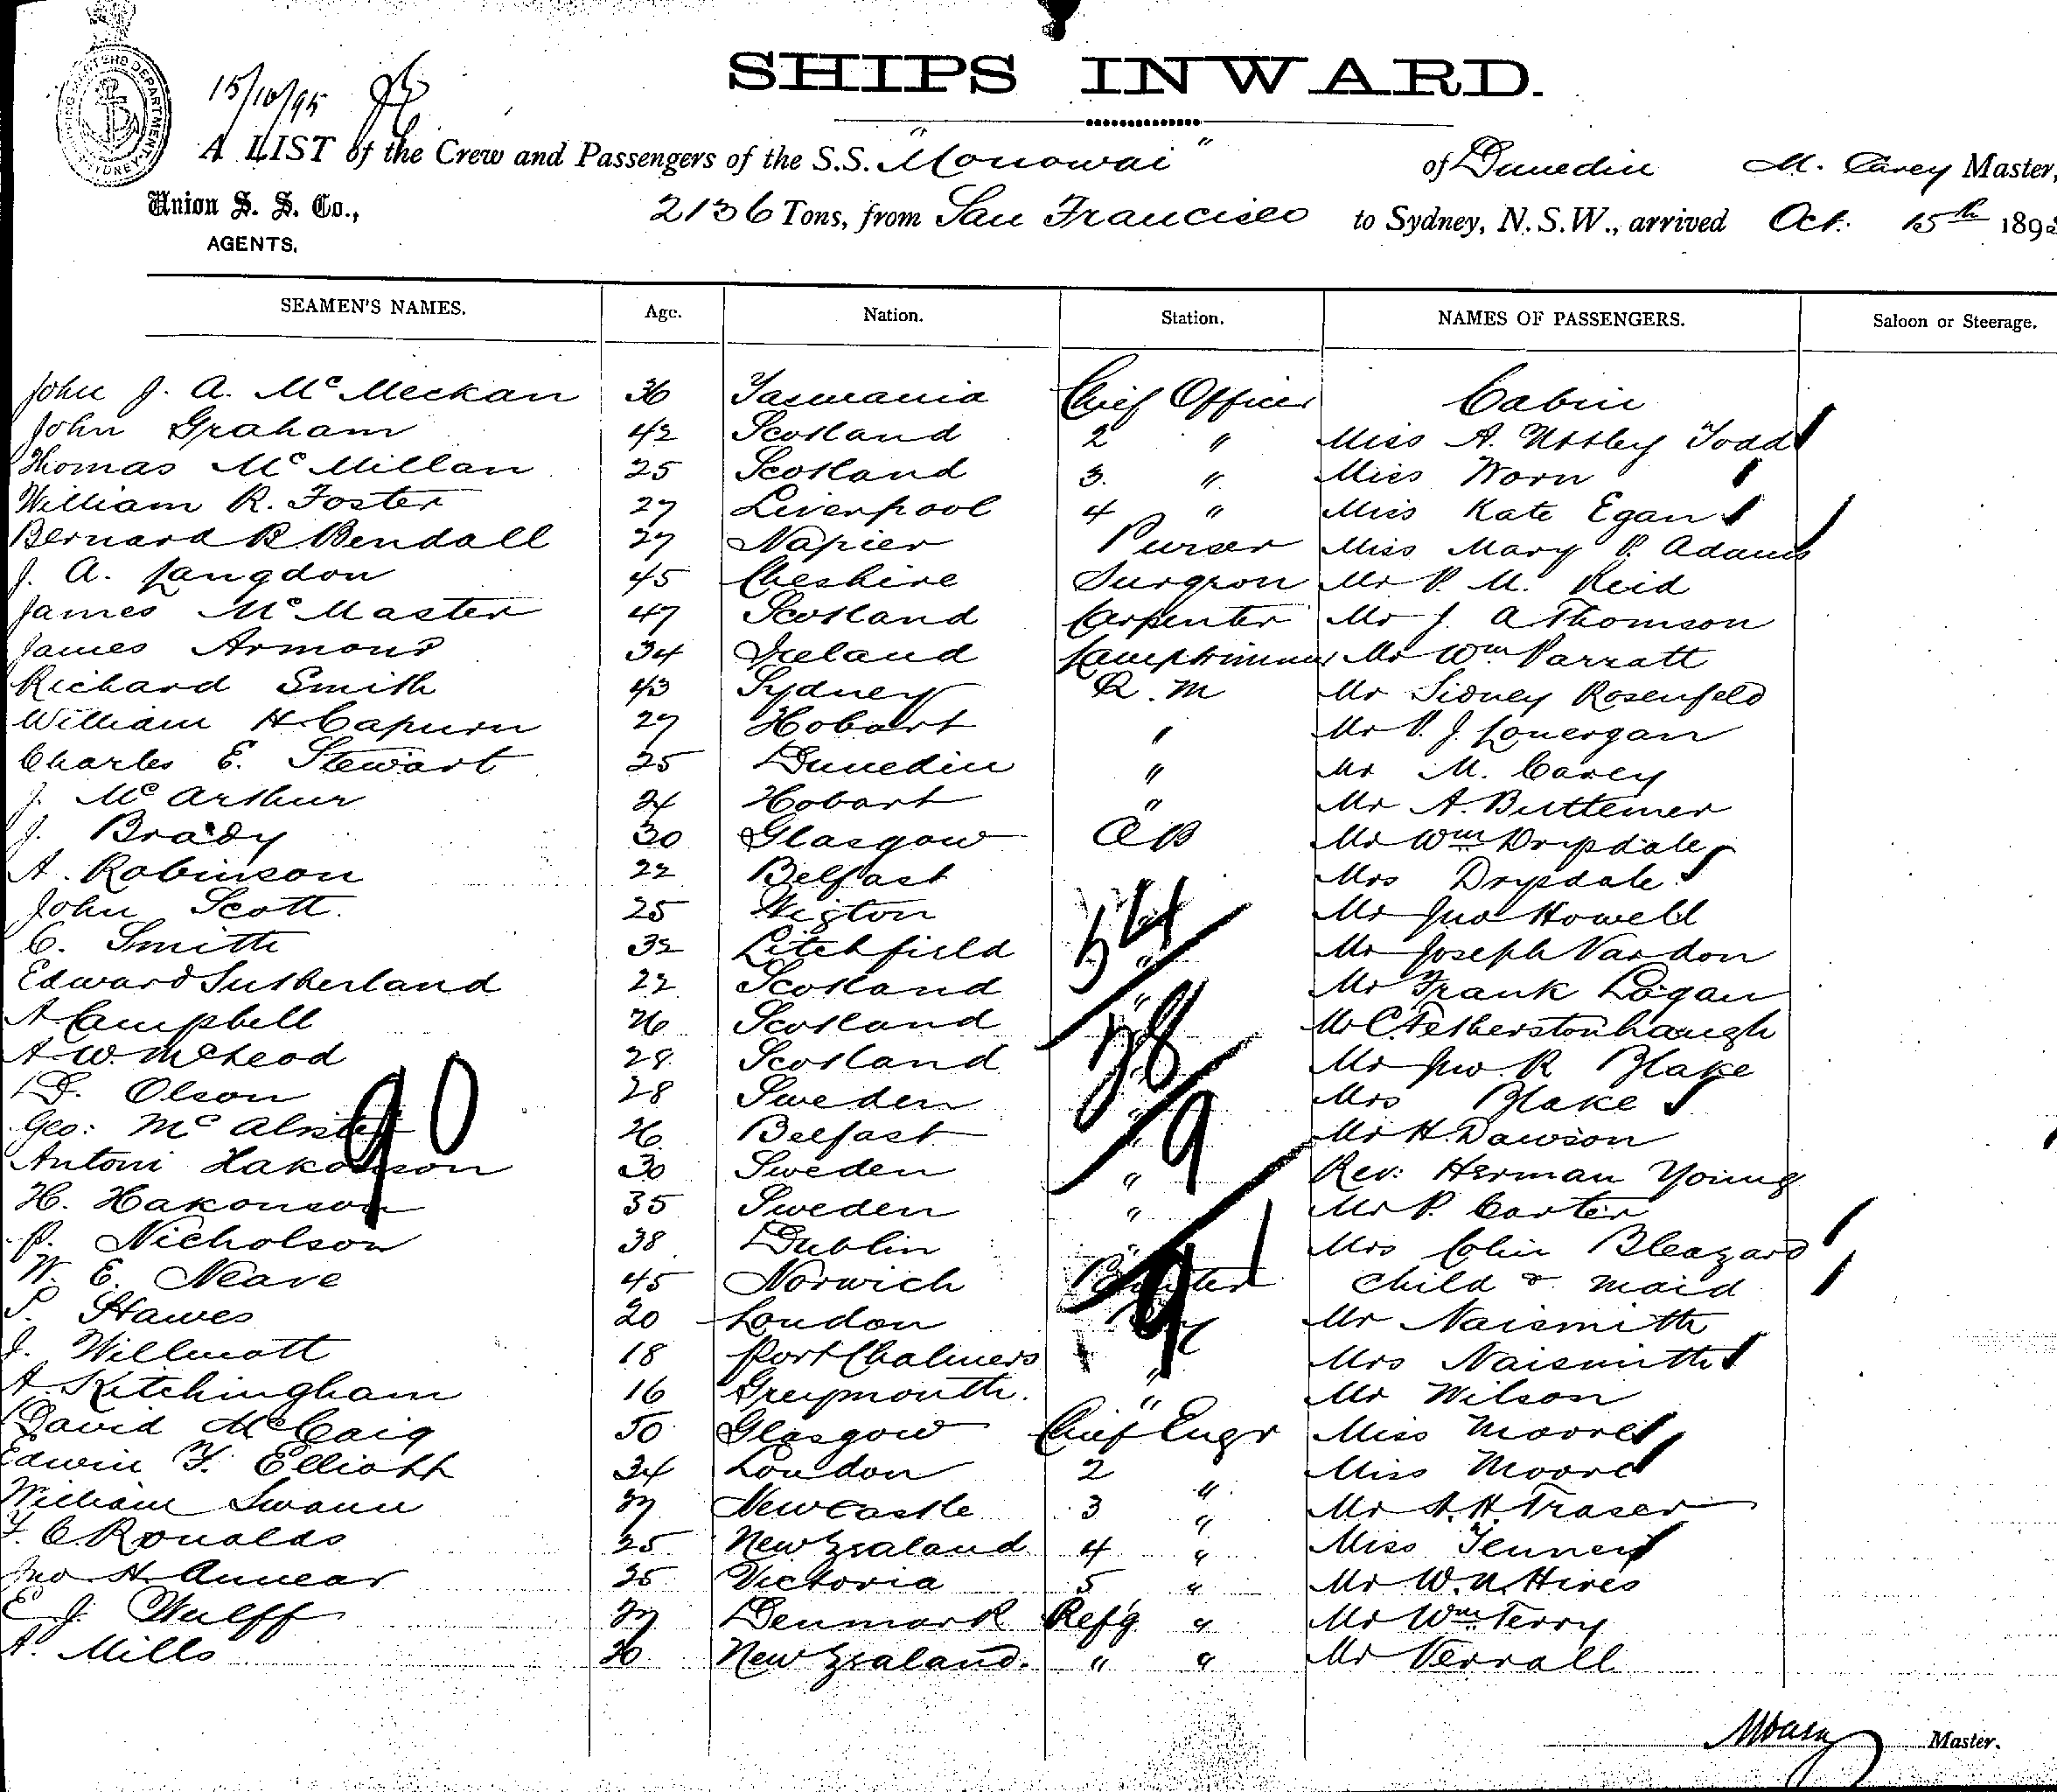 SHIPS INWARD.
15/10/95
A LIST of the Crew and Passengers of the S.S. "Monowai" of Dunedin M. Carey Master,
Union S. S. Co., 2136 Tons, from San Francisco to Sydney, N.S.W., arrived Oct. 15th 189
AGENTS.
SEAMEN'S NAMES. Age. Nation. Station. NAMES OF PASSENGERS. Saloon or Steerage.
John J. A. McMeckan 36 Tasmania Chief Officer Cabin
John Graham 42 Scotland 2 " Miss A. Uttley Todd
Thomas McMillan 25 Scotland 3. " Miss Worn
William R. Foster 27 Liverpool 4 " Miss Kate Egan
Bernard R. Bendall 27 Napier Purser Miss Mary P. Adams
J. A. Langdon 45 Cheshire Surgeon Mr P. M. Reid
James McMaster 47 Scotland Carpenter Mr J. A Thomson
James Armour 34 Ireland Lamptrimmer Mr Wm Parratt
Richard Smith 43 Sydney Q. M Mr Sidney Rosenfeld
William H. Capurn 27 Hobart " Mr P. J. Lonergan
Charles E. Stewart 25 Dunedin " Mr M. Carey
J. McArthur 24 Hobart " Mr A. Buttemer
J. Brady 30 Glasgow AB Mr Wm Drysdale
A. Robinson 22 Belfast " Mrs Drysdale
John Scott. 25 Wigton Mr Jno Howell
C. Smith 32 Litchfield " Mr Joseph Vardon
Edward Sutherland 22 Scotland " Mr Frank Logan
A. Campbell 26 Scotland Mr C. Fetherstonhaugh
A. W. McLeod 28 Scotland Mr Jno. R Blake
D. Olson 28 Sweden " Mrs Blake
Geo: McAlister 26 Belfast " Mr H. Dawson
Antoni Hakonson 30 Sweden " Rev: Herman Young
H. Hakonson 35 Sweden " Mr P. Carter
P. Nicholson 38 Dublin " Mrs Colin Bleazard
W. E. Neave 45 Norwich child & maid
S. Hawes 20 London Mr Naismith
J. Willmott 18 Port Chalmers " Mrs Naismith
A. Kitchingham 16 Greymouth. " Mr Wilson
David McCaig 50 Glasgow Chief Engr Miss Moore
Edwin F. Elliott 34 London 2 " Miss Moore
William Swann 37 Newcastle 3 " Mr A. H. Fraser
F. C. Ronalds 25 New Zealand 4 " Miss Tenney
Jno H. Annear 25 Victoria 5 " Mr W. N. Hires
E J. Wulff 37 Denmark Refg " Mr Wm Terry
A. Mills 26 New Zealand. " " Mr Verrall
90
54
38
9
91
Master.